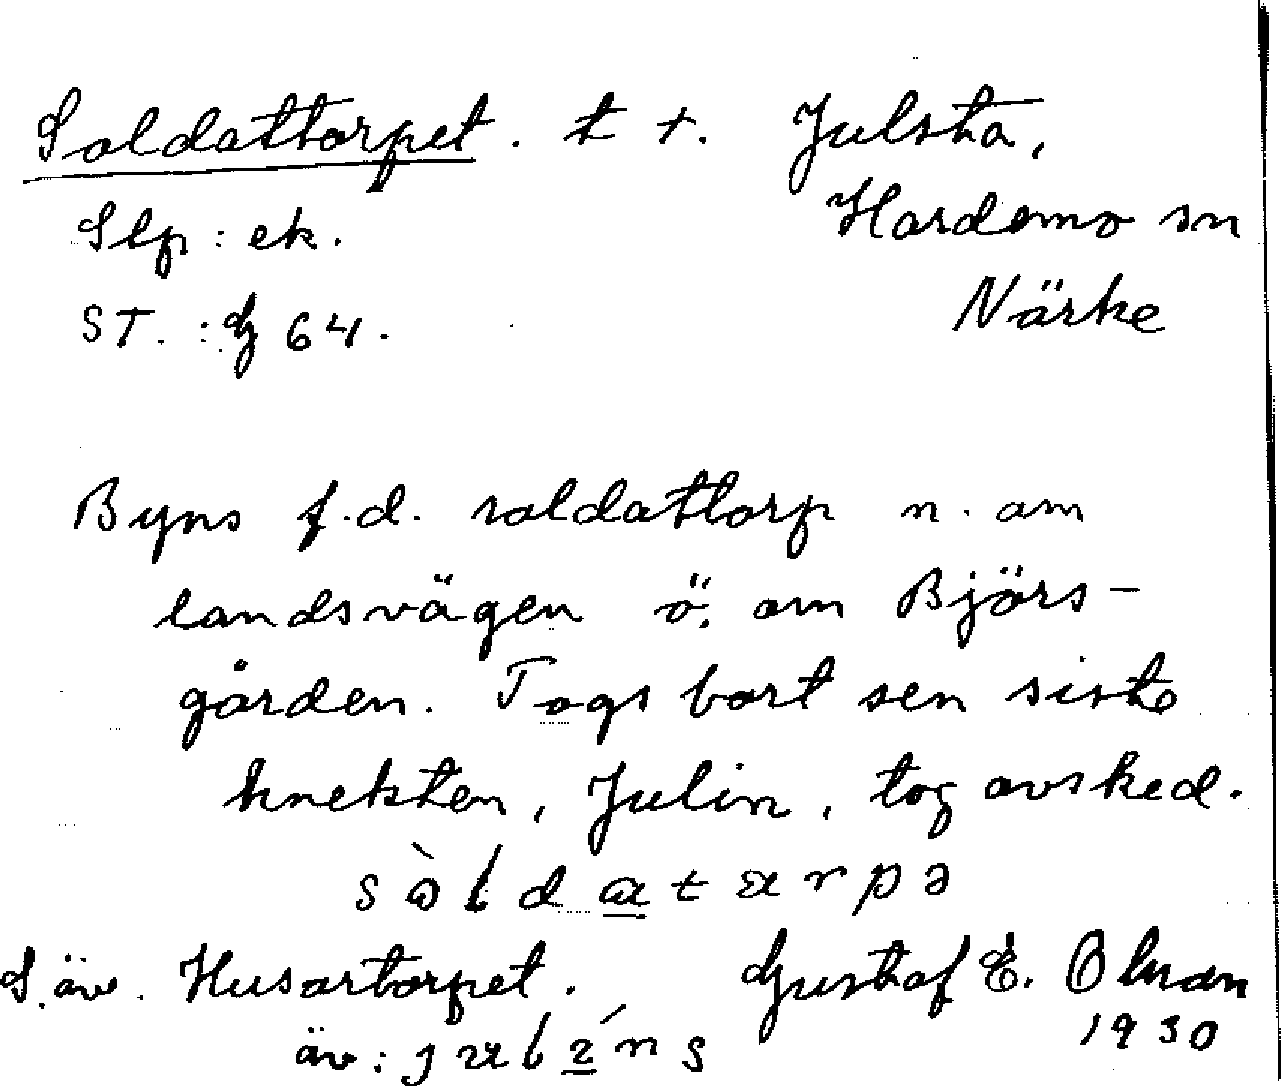 Soldattorpet. t t. Julsta,
Slp: ek. Hardemo sn
ST.: G 64. Närke
Byns f.d. soldattorp n. om
landsvägen ö. om Björs-
gården. Togs bort sen siste
knekten, Julin, tog avsked.
S. äv. Husartorpet. Gustaf E. Ohman
äv: 1930